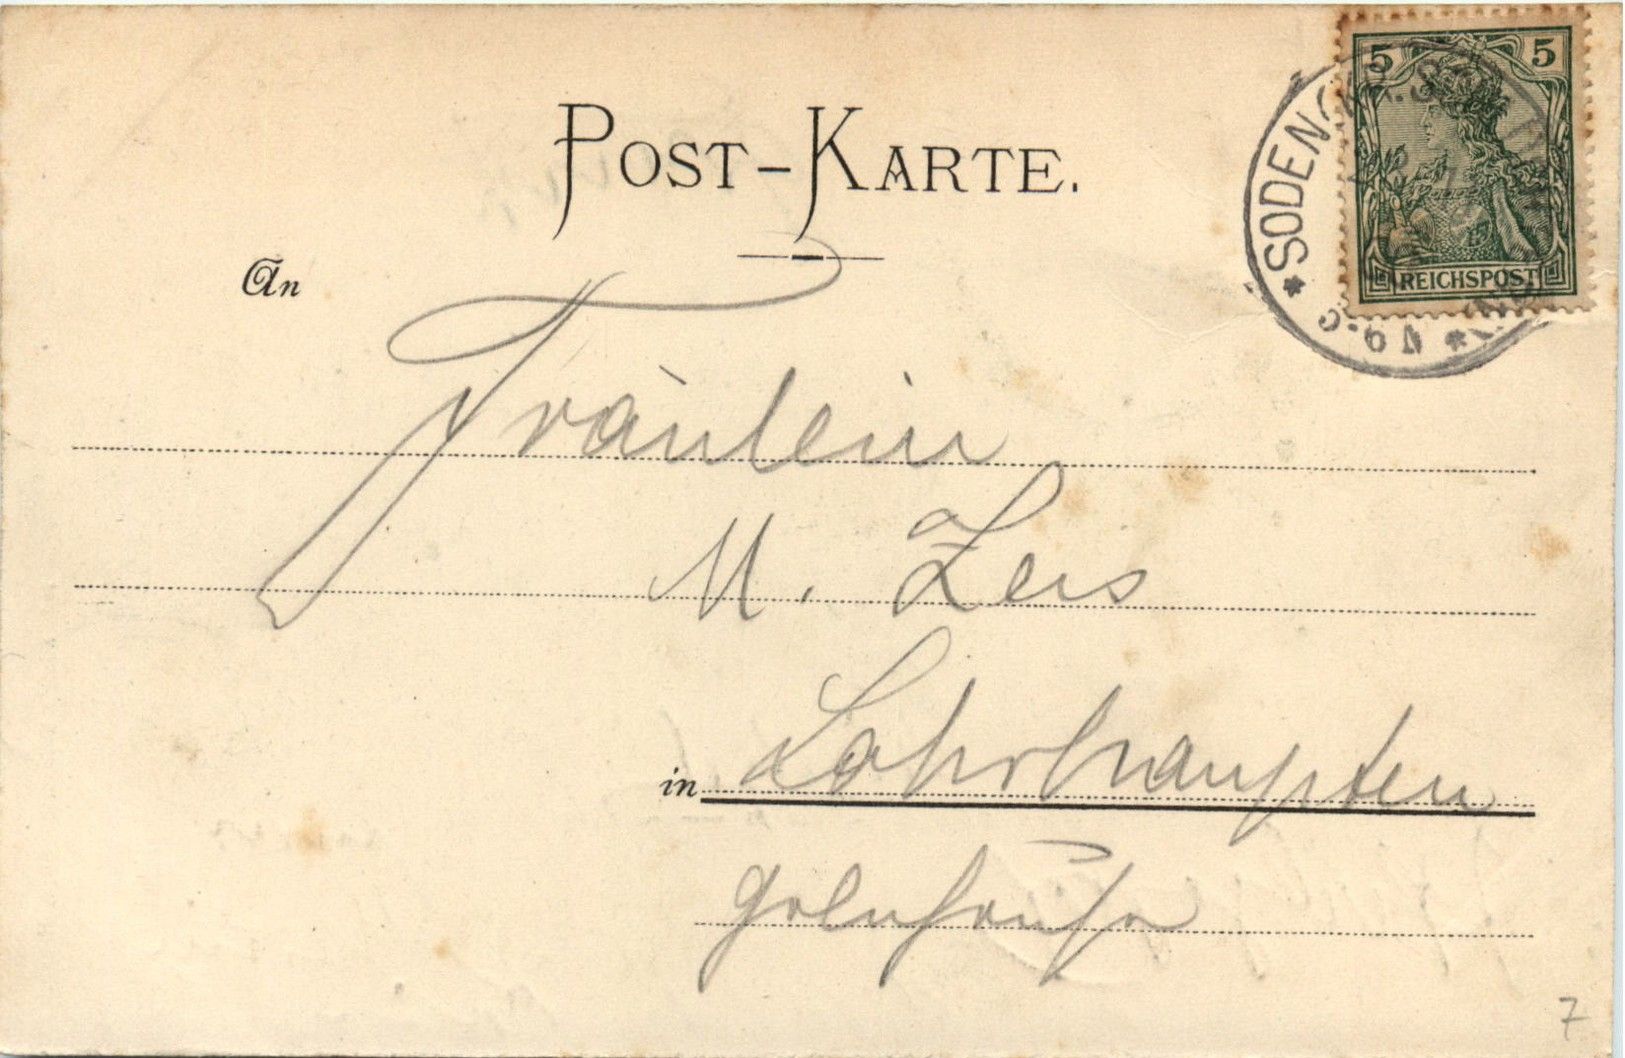 POST-KARTE.
5 5
REICHSPOST
* SODEN
An
Fräulein
M. Zeis
in Lohrhaupten
Gelnhausen
7